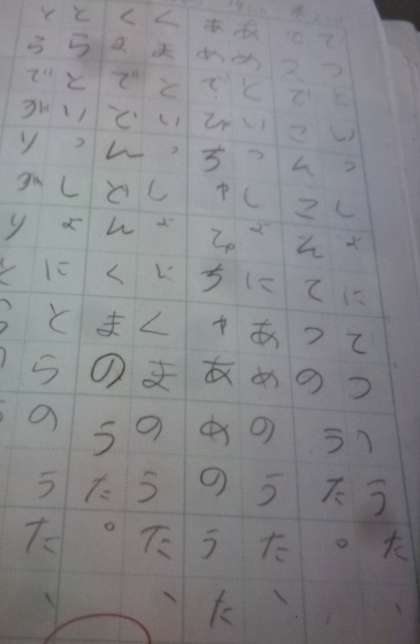 てつといっしょにてつのうた、
てつでこんこんてつのうた。
あめといっしょにあめのうた、
あめでぴちゃぴちゃあめのうた
くまといっしょにくまのうた、
くまでどんどんくまのうた。
とらといっしょにとらのうた、
とらでがりがりとら